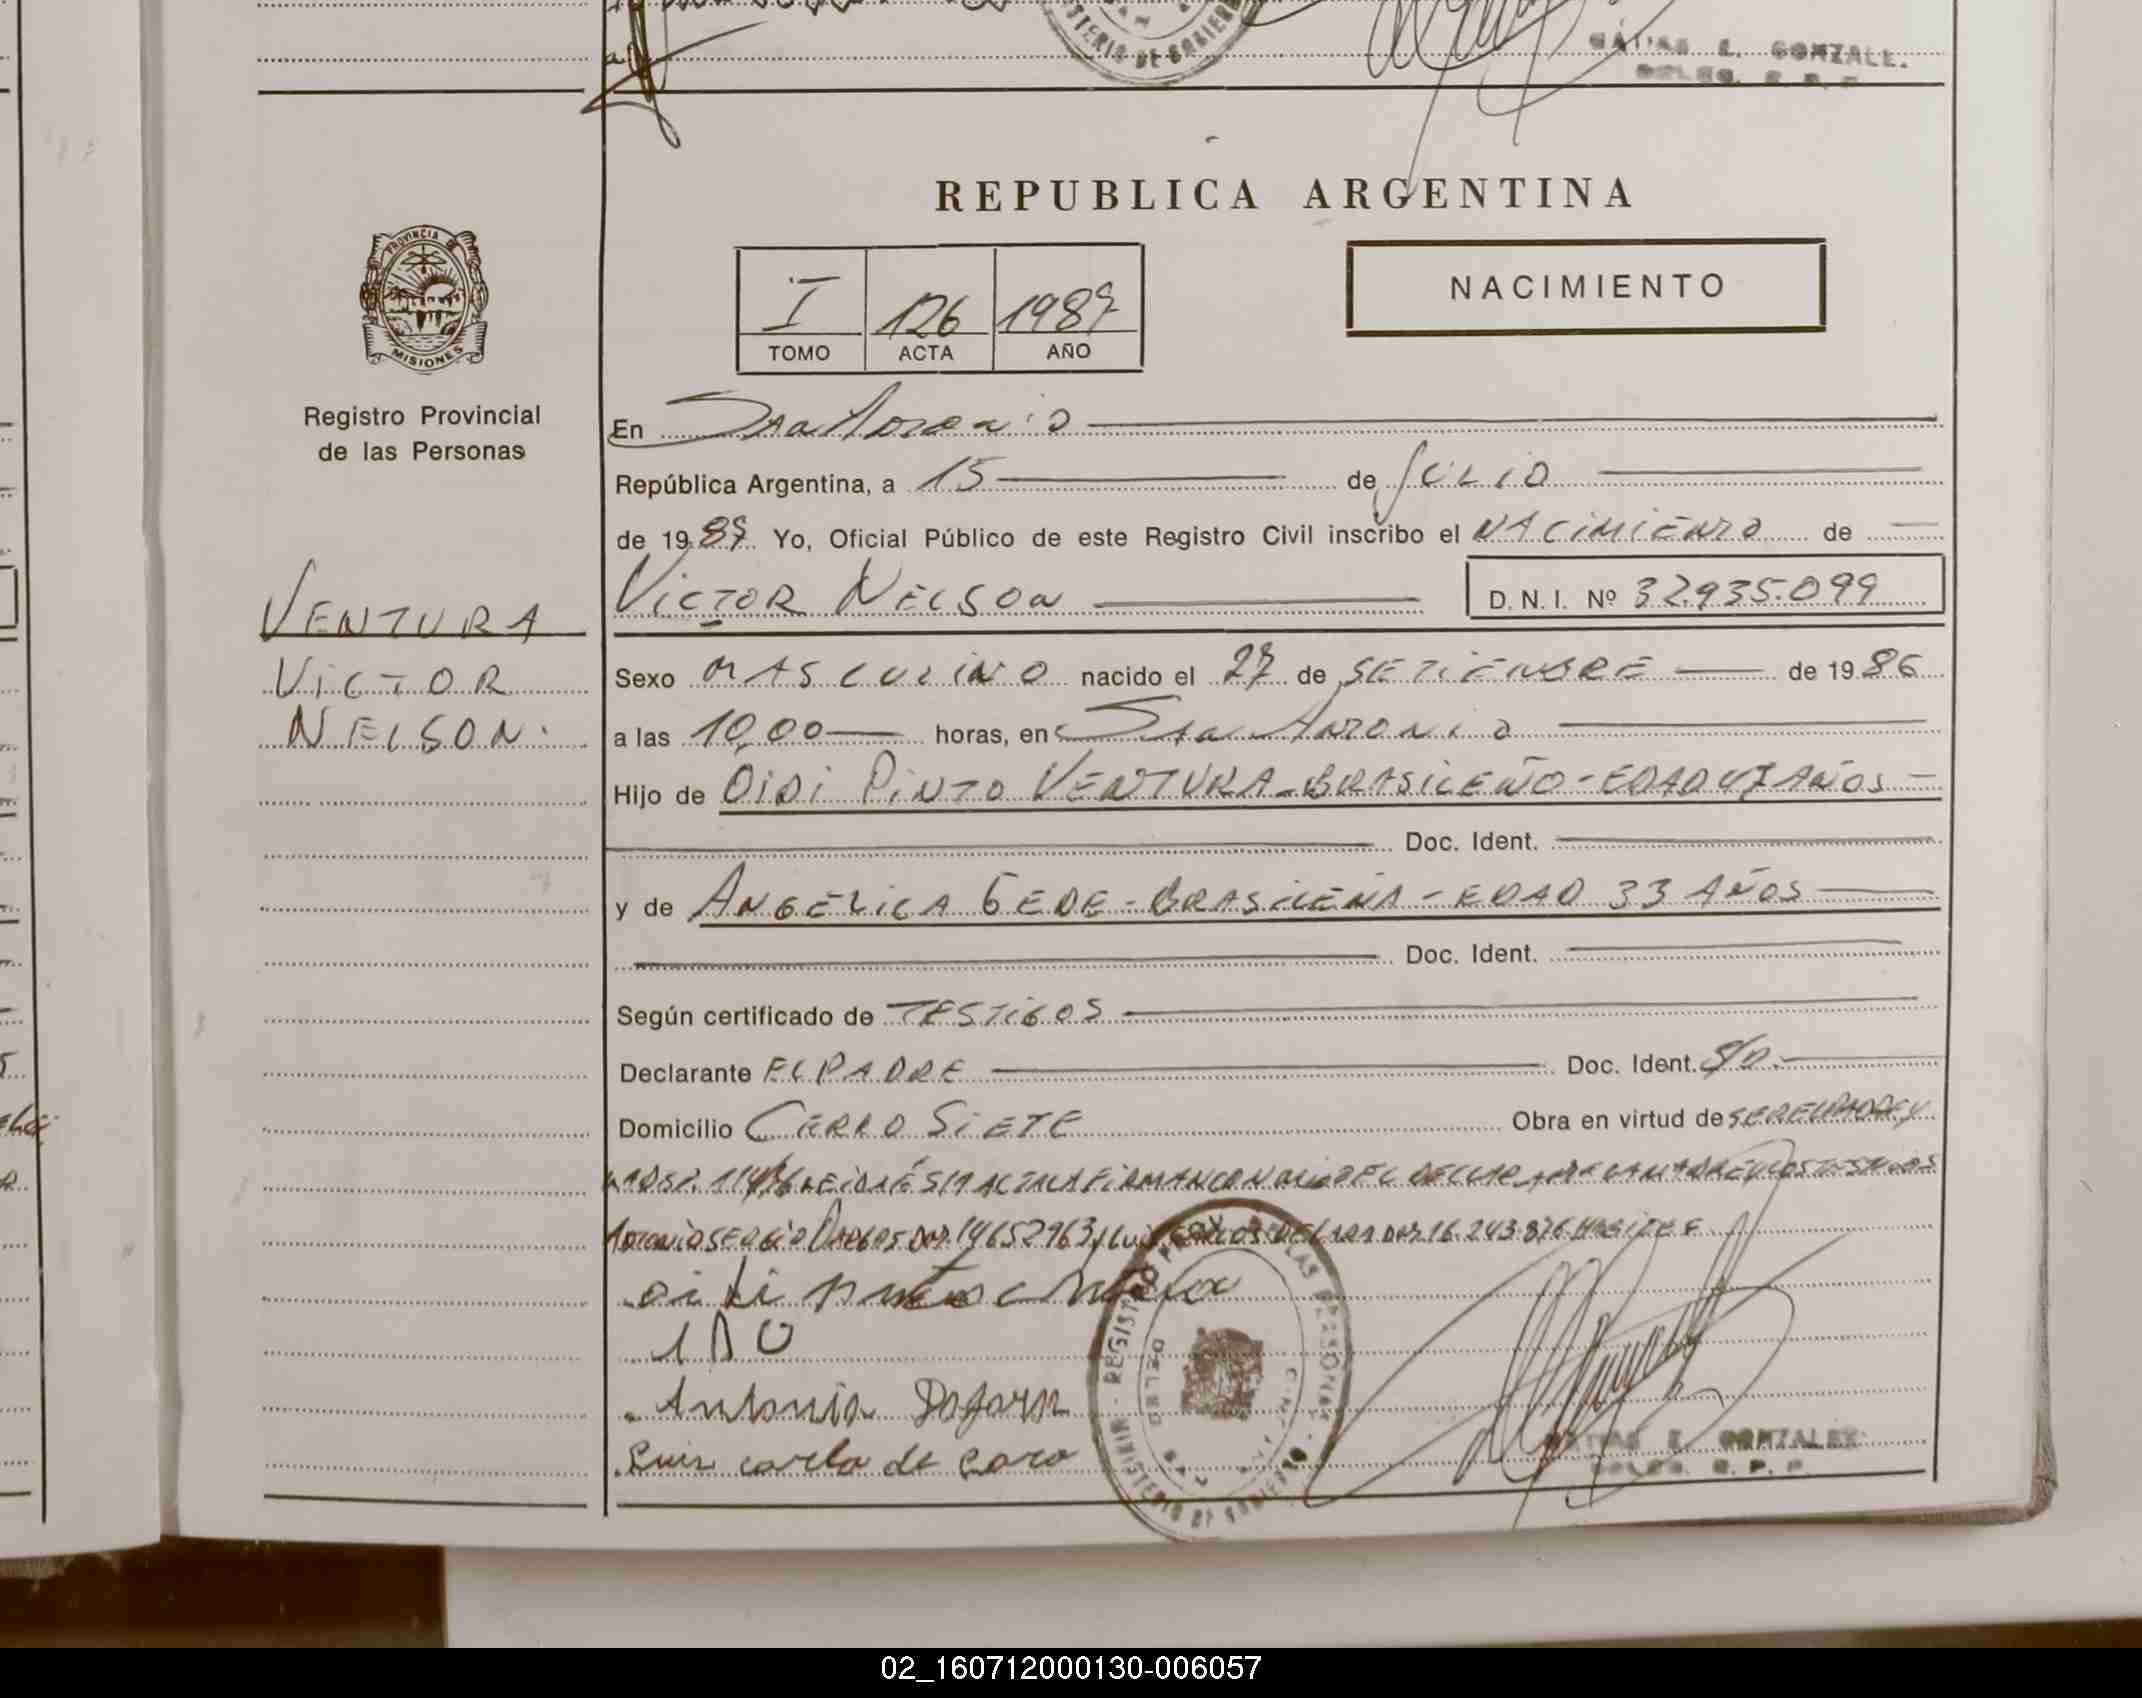 MINISTERIO DE GOBIERNO
MATIAS E. GONZALEZ
REPUBLICA ARGENTINA
PROVINCIA DE
MISIONES
Registro Provincial
de las Personas
I 126 1987
TOMO ACTA AÑO
NACIMIENTO
En San Antonio
República Argentina, a 15 de JULIO
de 1987 Yo, Oficial Público de este Registro Civil inscribo el NACIMIENTO de
VENTURA
VICTOR
NELSON.
VICTOR NELSON D. N. I. Nº 32.935.099
Sexo MASCULINO nacido el 27 de SETIEMBRE de 1986
a las 10,00 horas, en San Antonio
Hijo de OIDI PINTO VENTURA - BRASILEÑO - EDAD 47 AÑOS
Doc. Ident.
y de ANGELICA GEDE - BRASILEÑA - EDAD 33 AÑOS
Doc. Ident.
Según certificado de TESTIGOS
Declarante EL PADRE Doc. Ident. S/D.
Domicilio CERRO SIETE Obra en virtud de SER EL PADRE Y
LEIDA ÉSTA ACTA LA FIRMAN CONMIGO EL DECLARANTE LA MADRE Y LOS TESTIGOS
ANTONIO SERGIO DNI 14652963 y LUIS CARLOS DNI 16.243.876
Antonio
Luis carlo de
REGISTRO LAS PERSONAS
MINISTERIO DE GOBIERNO
MATIAS E. GONZALEZ
02_160712000130-006057